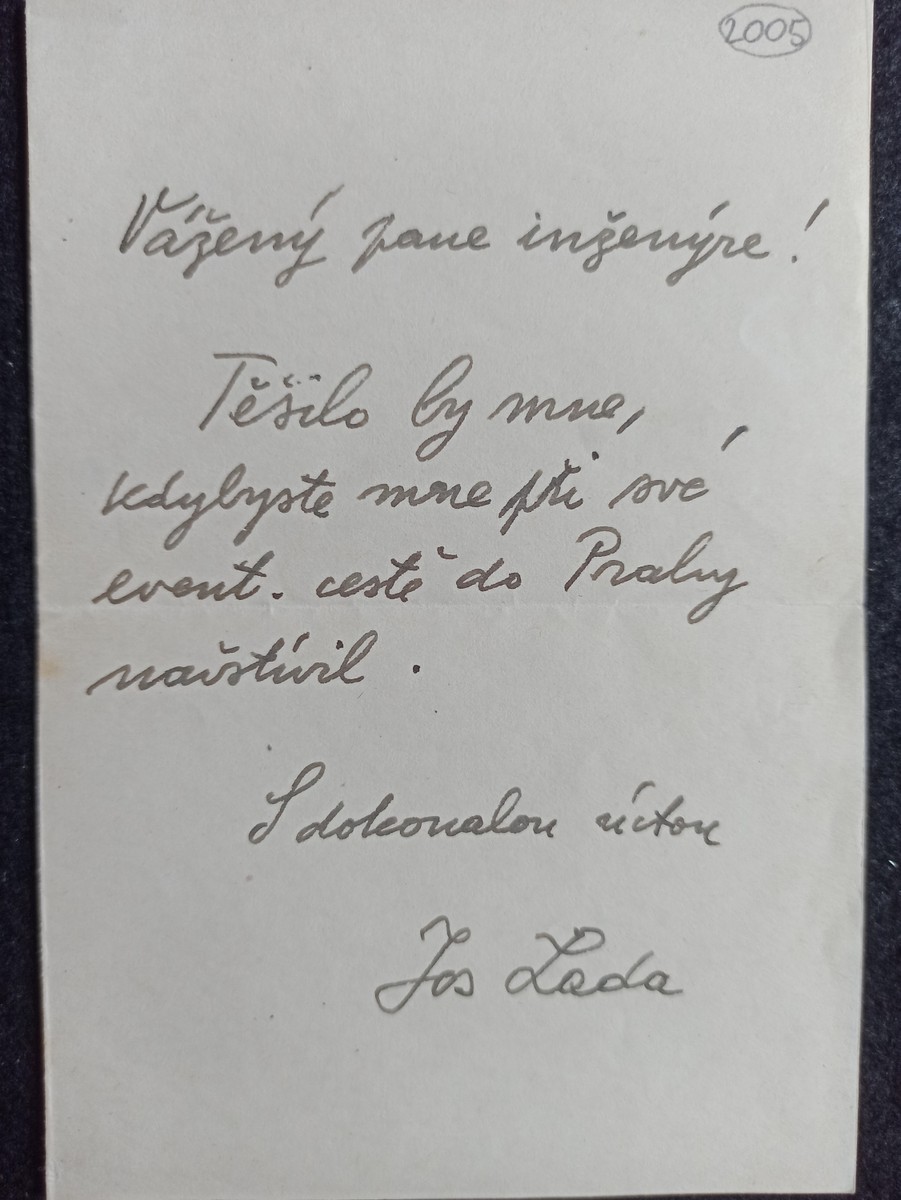 2005
Vážený pane inženýre!
Těšilo by mne,
kdybyste mne při své
event. cestě do Prahy
navštívil.
S dokonalou úctou
Jos Lada